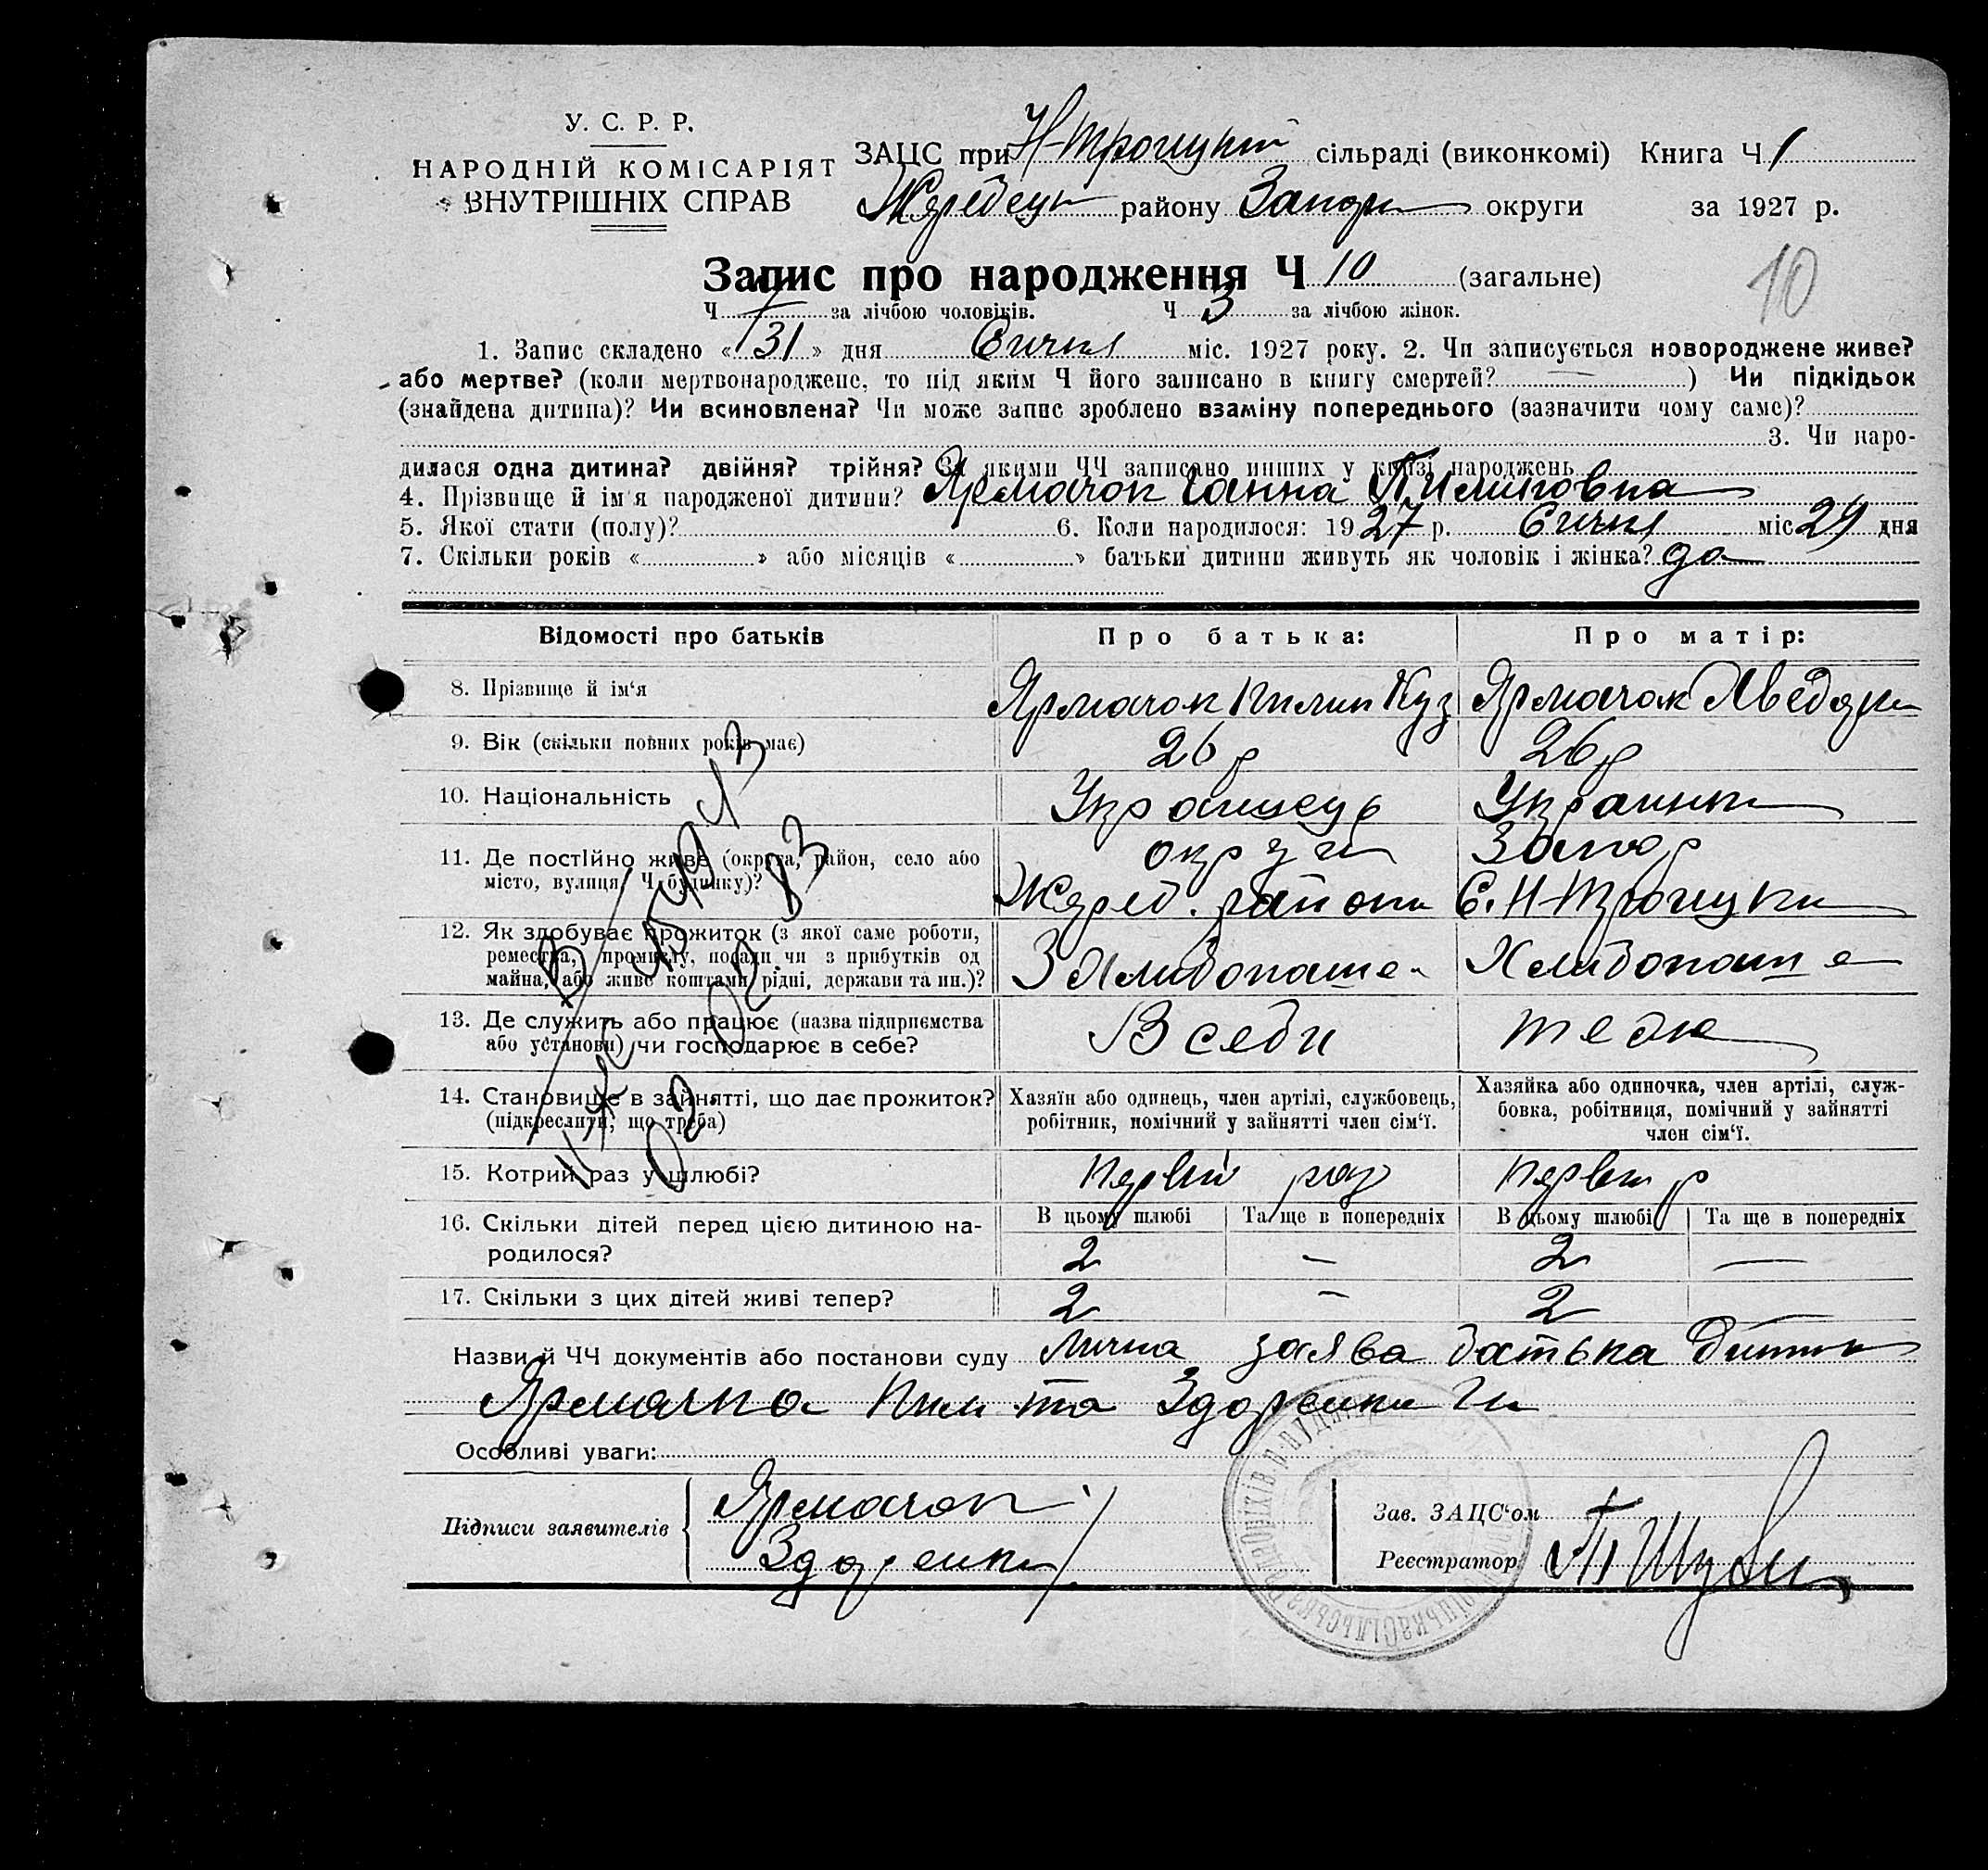 У. С. Р. Р.
НАРОДНІЙ КОМІСАРІЯТ
ВНУТРІШНІХ СПРАВ
ЗАЦС при Н-Троицкій сільраді (виконкомі) Книга Ч 1
Жеребецк району Запор округи за 1927 р.
Запис про народження Ч 10 (загальне)
10
Ч за лічбою чоловіків. Ч 3 за лічбою жінок.
1. Запис складено « 31 » дня Сичня міс. 1927 року. 2. Чи записується новороджене живе?
або мертве? (коли мертвонароджене, то під яким Ч його записано в книгу смертей? — ) Чи підкідьок
(знайдена дитина)? Чи всиновлена? Чи може запис зроблено взаміну попереднього (зазначити чому саме)?
3. Чи наро-
дилася одна дитина? двійня? трійня? За якими ЧЧ записано инших у книзі народжень
4. Прізвище й ім'я народженої дитини? Ярмачок Ганна Пилиповна
5. Якої стати (полу)? 6. Коли народилося: 1927 р. Сичня міс 29 дня
7. Скільки років « » або місяців « » батьки дитини живуть як чоловік і жінка? да
Відомості про батьків Про батька: Про матір:
8. Прізвище й ім'я Ярмачок Пилип Куз Ярмачок
9. Вік (скільки повних років має) 26 р 26 р
10. Національність Украинець Украинка
11. Де постійно живе (округа, район, село або округи Запор
місто, вулиця, Ч будинку)? Жереб. района С. Н-Троицки
12. Як здобуває прожиток (з якої саме роботи,
ремества, промислу, посади чи з прибутків од
майна, або живе коштами рідні, держави та ин.)? З Хлибопаше Хлибопаше
13. Де служить або працює (назва підприємства
або установи) чи господарює в себе? В себи тоже
14. Становище в зайнятті, що дає прожиток?
(підкреслити, що треба)
Хазяїн або одинець, член артілі, службовець,
робітник, помічний у зайнятті член сім'ї.
Хазяйка або одиночка, член артілі, служ-
бовка, робітниця, помічний у зайнятті
член сім'ї.
15. Котрий раз у шлюбі? Первий раз Первий р
16. Скільки дітей перед цією дитиною на-
родилося?
В цьому шлюбі Та ще в попередніх В цьому шлюбі Та ще в попередніх
2 — 2 —
17. Скільки з цих дітей живі тепер? 2 — 2 —
Назви й ЧЧ документів або постанови суду Лична заява батька
Ярмачка Пил та
Особливі уваги:
Підписи заявителів Ярмачок
Зав. ЗАЦС'ом
Реєстратор